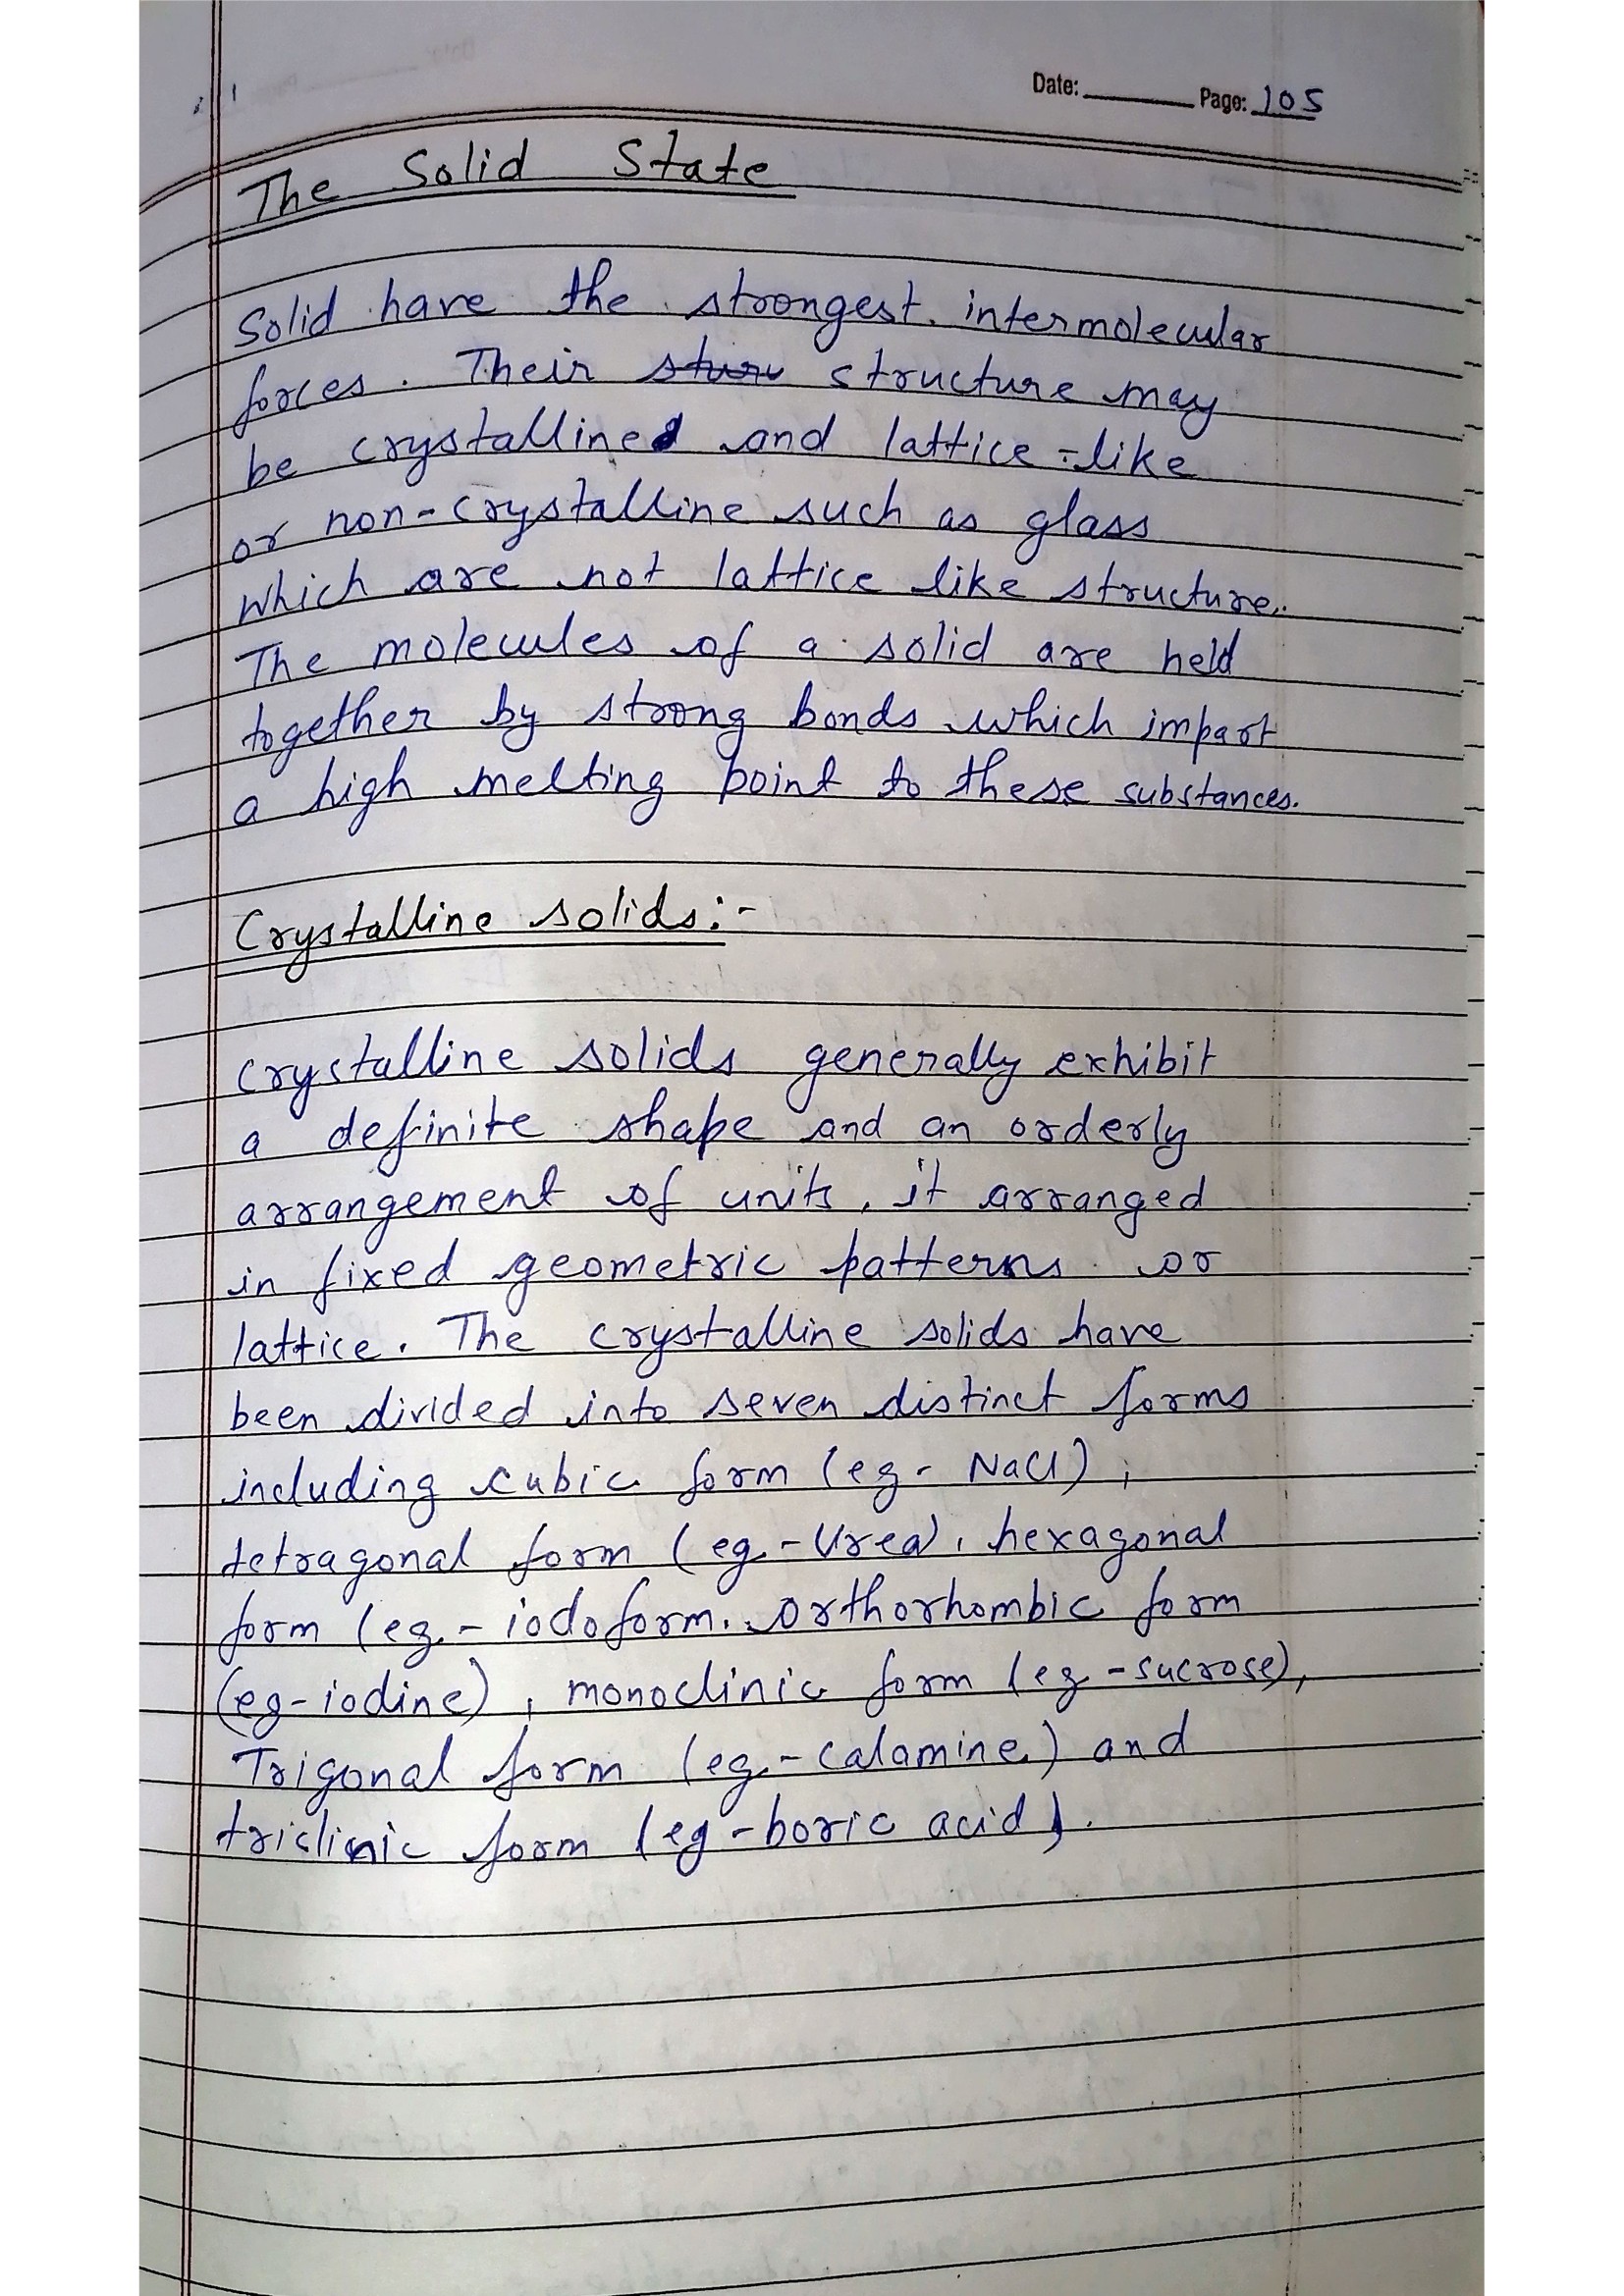 Date: Page: 105
The Solid State
Solid have the strongest intermolecular
forces. Their structure may
be crystalline and lattice-like
or non-crystalline such as glass
which are not lattice like structure.
The molecules of a solid are held
together by strong bonds which impart
a high melting point to these substances.
Crystalline solids:-
Crystalline solids generally exhibit
a definite shape and an orderly
arrangement of units, it arranged
in fixed geometric patterns or
lattice. The crystalline solids have
been divided into seven distinct forms
including cubic form (eg- NaCl),
tetragonal form (eg.- Urea), hexagonal
form (eg.- iodoform. orthorhombic form
(eg-iodine), monoclinic form (eg-sucrose),
Trigonal form (eg.-calamine) and
triclinic form (eg-boric acid).